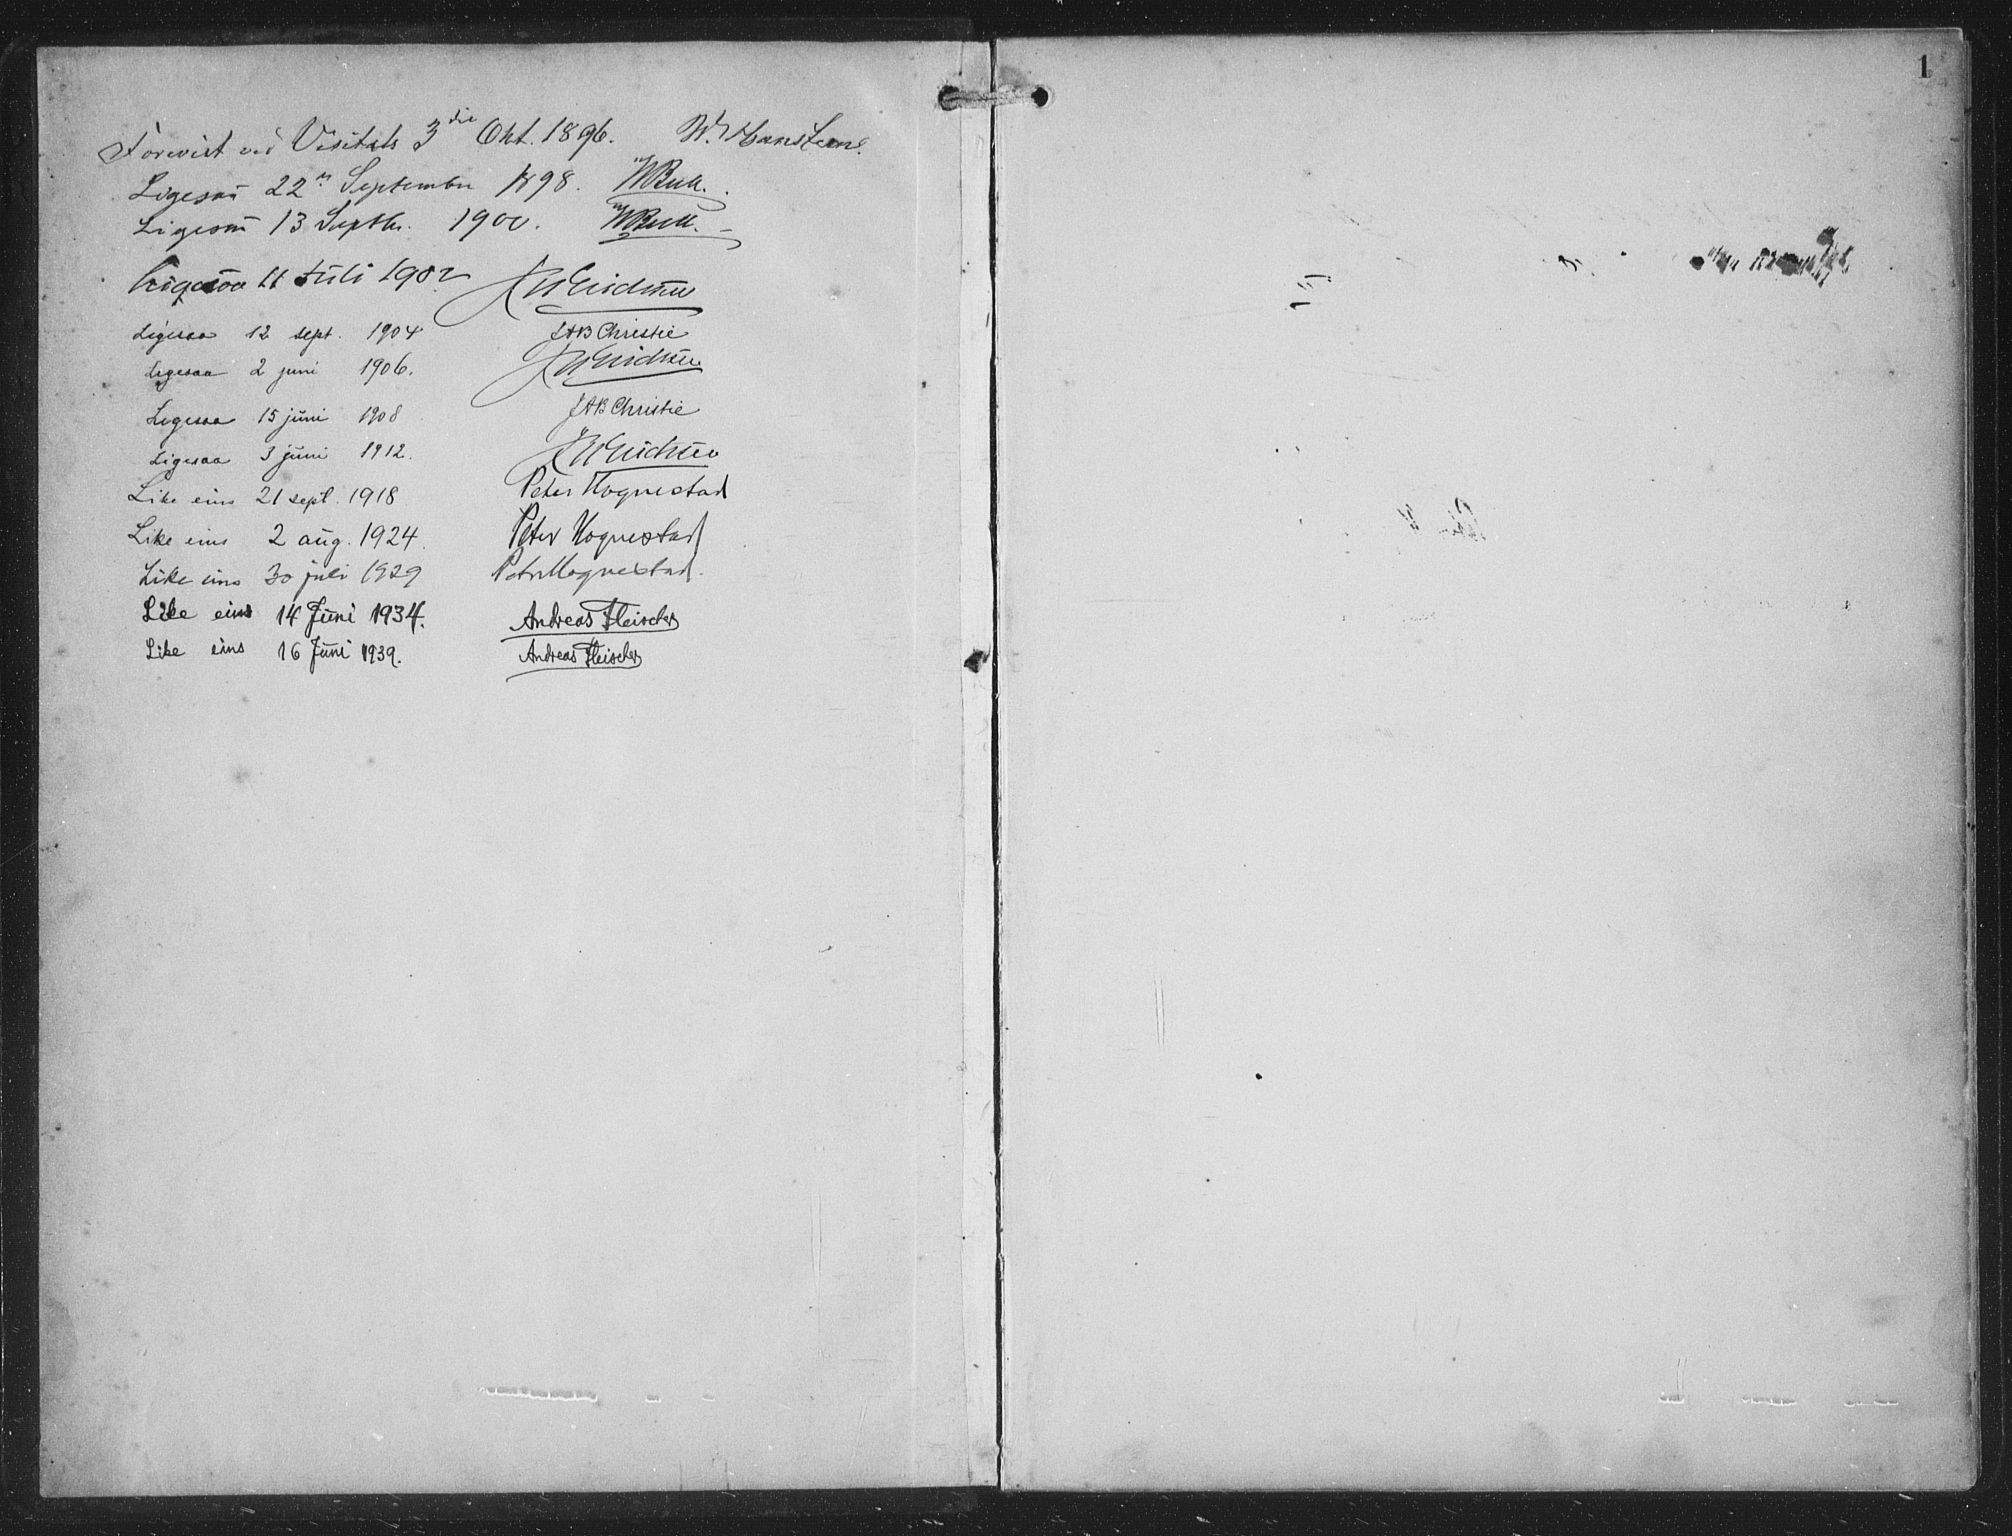 Forevist ved Visitats 3die Okt. 1896. W. Hansteen.
Ligesaa 22n September 1898. W Bull.
Ligesaa 13 Septbr. 1900. W Bull.
Ligesaa 11 Juli 1902
Ligesaa 12 sept. 1904 JAB Christie
Ligesaa 2 juni 1906.
Ligesaa 15 juni 1908 JAB Christie
Ligesaa 3 juni 1912.
Like eins 21 sept. 1918 Peter Hognestad
Like eins 2 aug. 1924. Peter Hognestad
Like eins 30 juli 1929 Peter Hognestad.
Like eins 14 Juni 1934. Andreas Fleischer
Like eins 16 Juni 1939. Andreas Fleischer
1